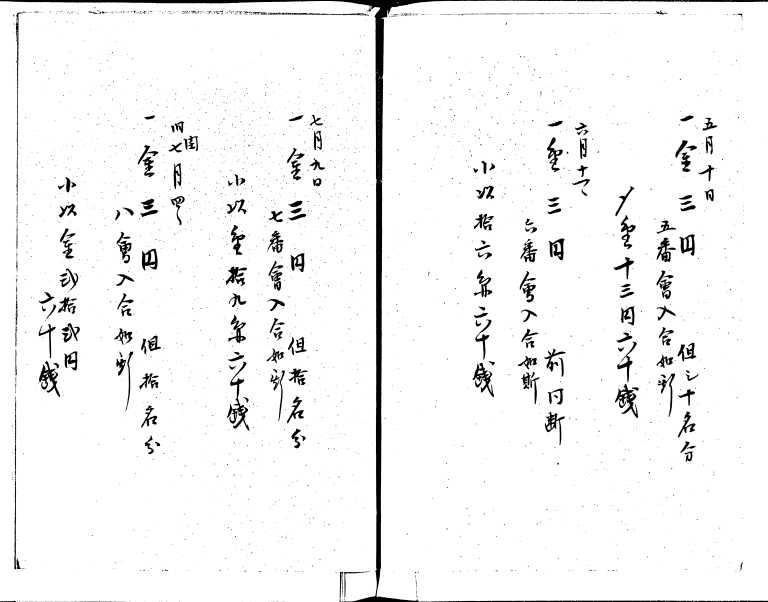 五月十日
一金三円　但シ十名分
五番會入合如斯
〆金十三円六十銭
六月十一日
一金三円　前同断
六番會入合如斯
小以拾六円六十銭
七月九日
一金三円　但拾名分
七番會入合如斯
小以金拾九円六十銭
閏
四七月四日
一金三円　但拾名分
八會入合如斯
小以金弐拾弐円
六十銭